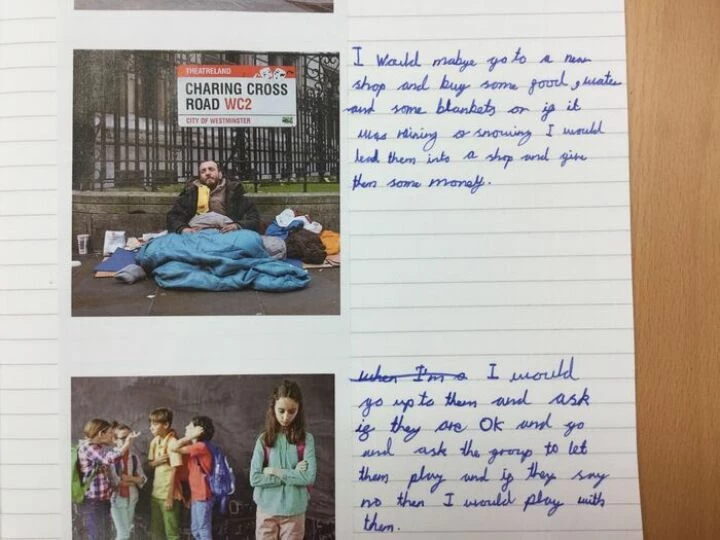 THEATRELAND
CHARING CROSS
ROAD WC2
CITY OF WESTMINSTER
I Would mabye go to a near
shop and buy some good, water
and some blankets or if it
was raining or snowing I would
lead them into a shop and give
them some money.
when I'm a I would
go up to them and ask
if they are OK and go
and ask the group to let
them play and if they say
no then I would play with
them.